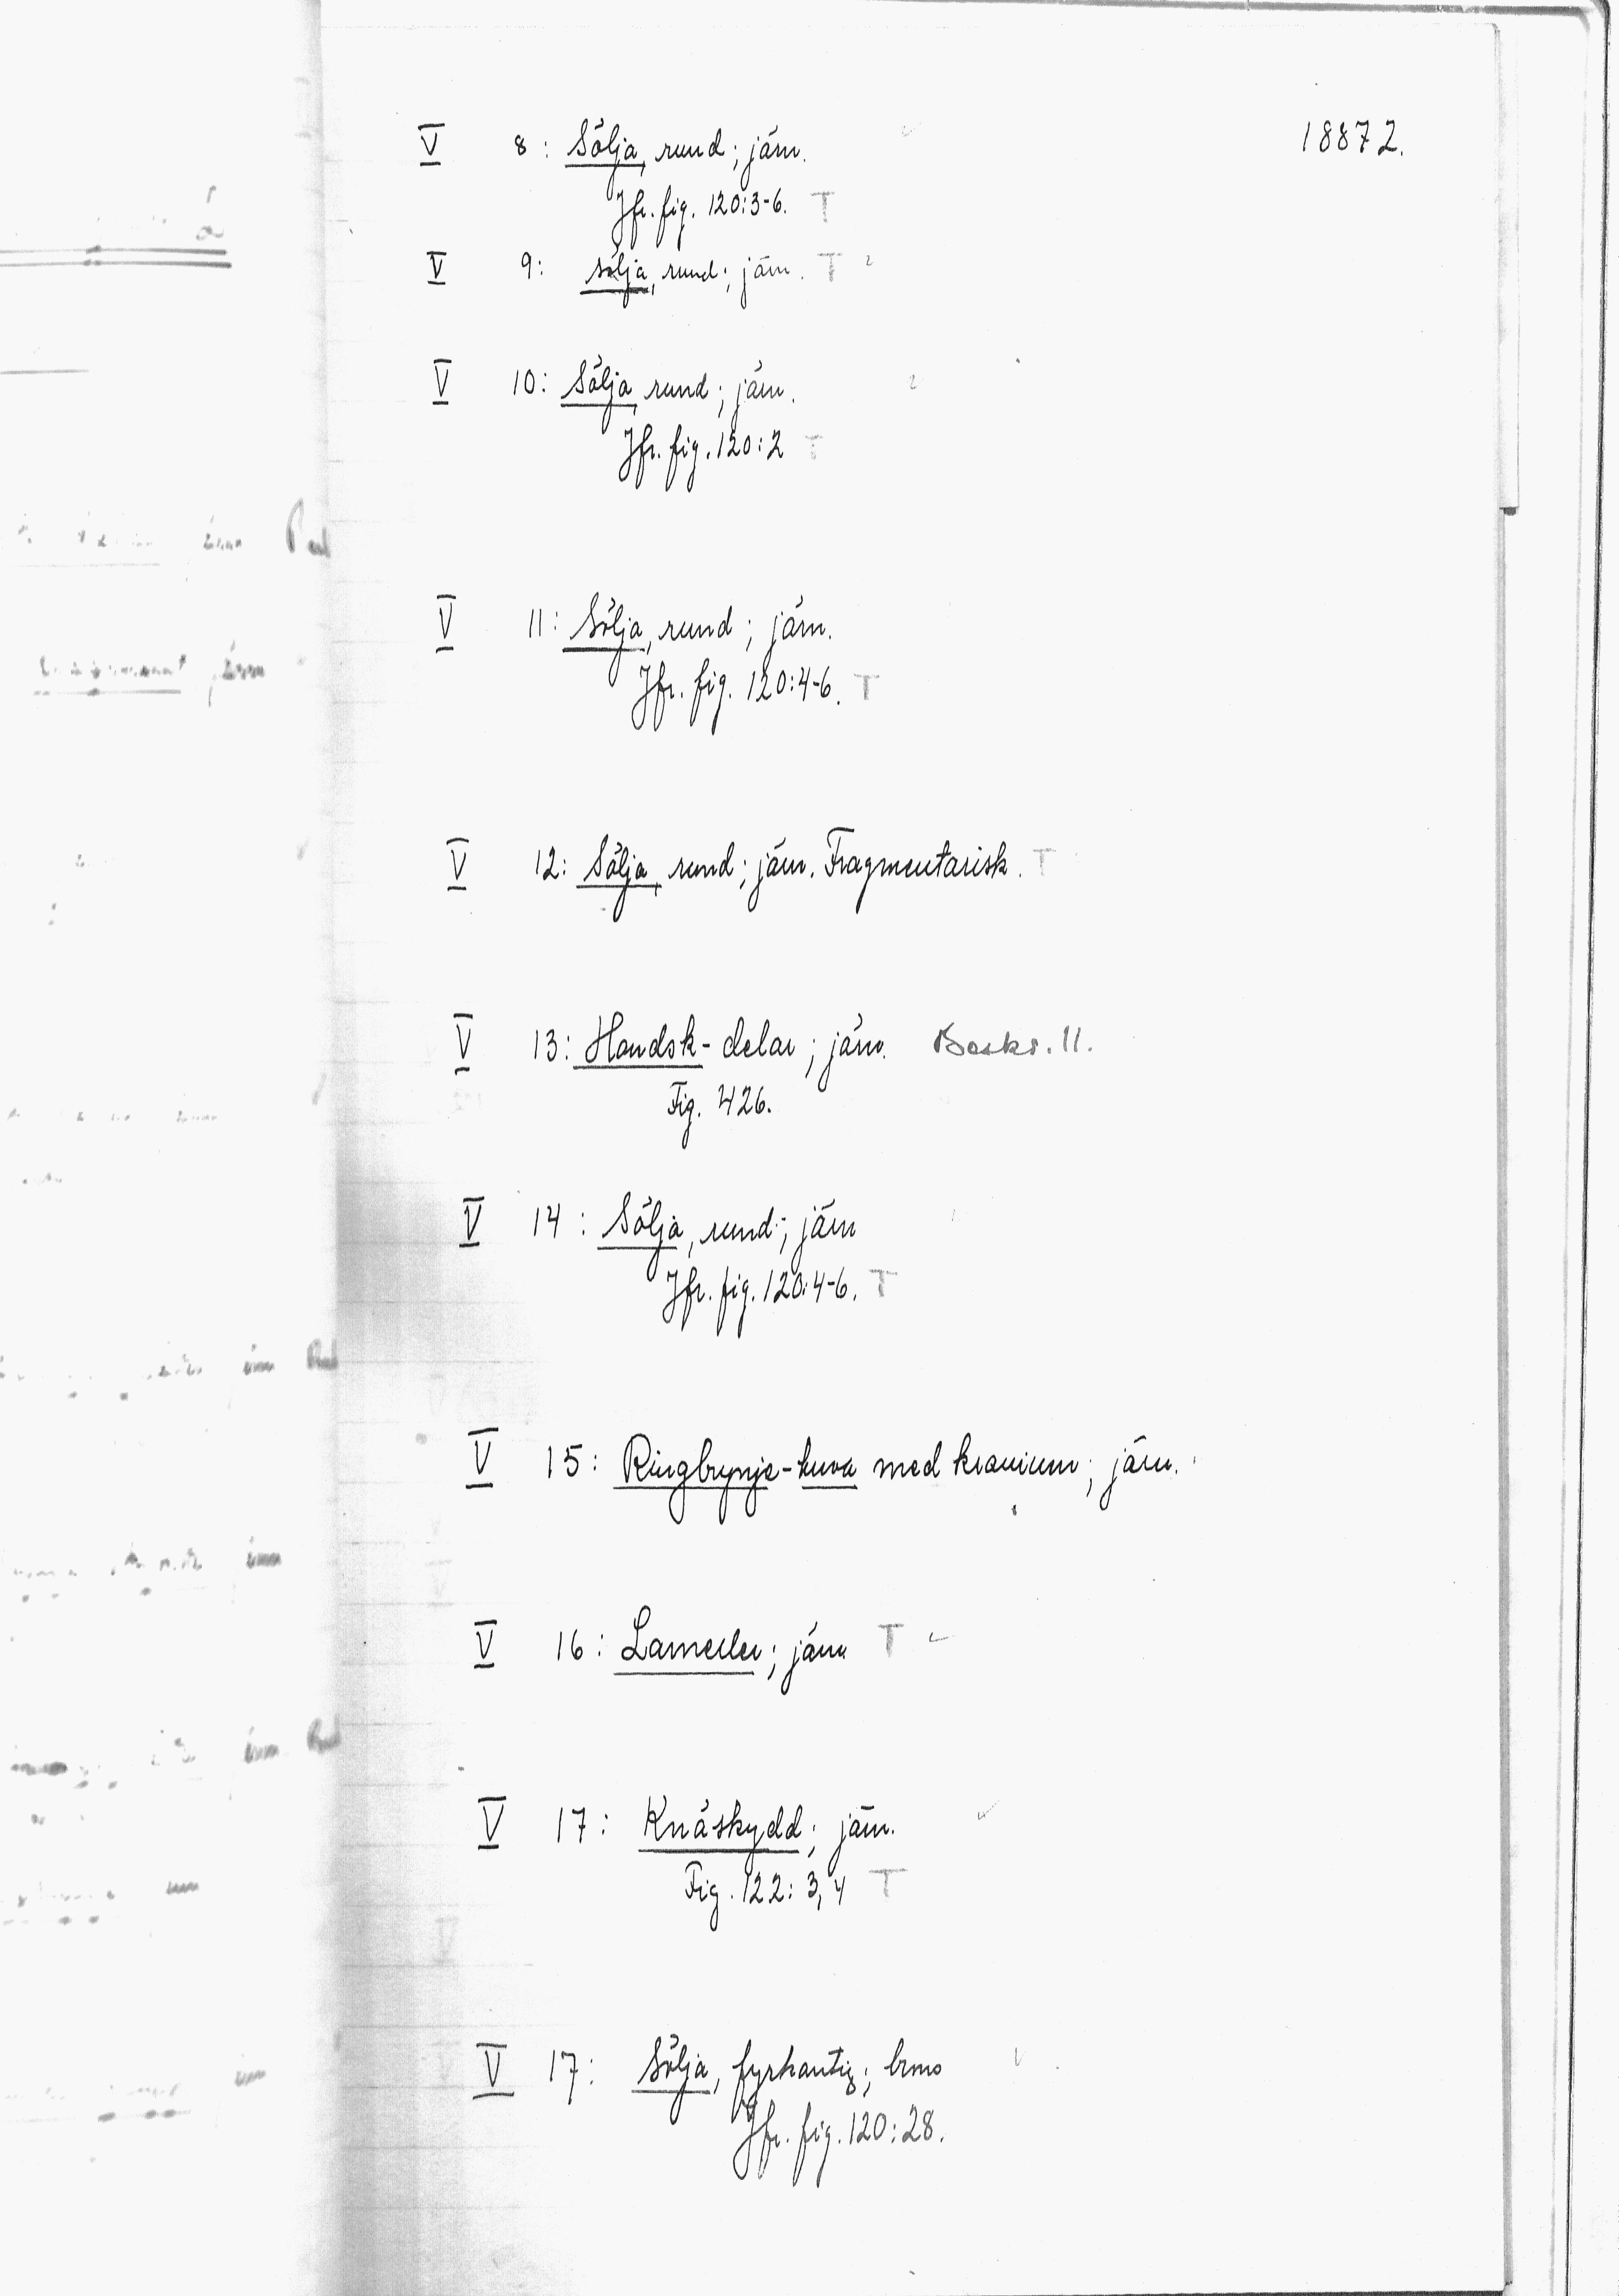 18872.
V 8: Sölja, rund; järn.
Jfr. fig. 120:3-6. T
V 9: sölja, rund; järn. T
V 10: Sölja, rund; järn.
Jfr. fig. 120:2 T
V 11: Sölja, rund; järn.
Jfr. fig. 120:4-6. T
V 12: Sölja, rund; järn. Fragmentarisk. T
V 13: Handsk-delar; järn. Beskr. 11.
Fig. 426.
V 14: Sölja, rund; järn
Jfr. fig. 120:4-6. T
V 15: Ringbrynje-huva med kranium; järn.
V 16: Lameller; järn T
V 17: Knäskydd; järn.
Fig. 122: 3, 4 T
V 17: Sölja, fyrkantig; brons
Jfr. fig. 120:28.